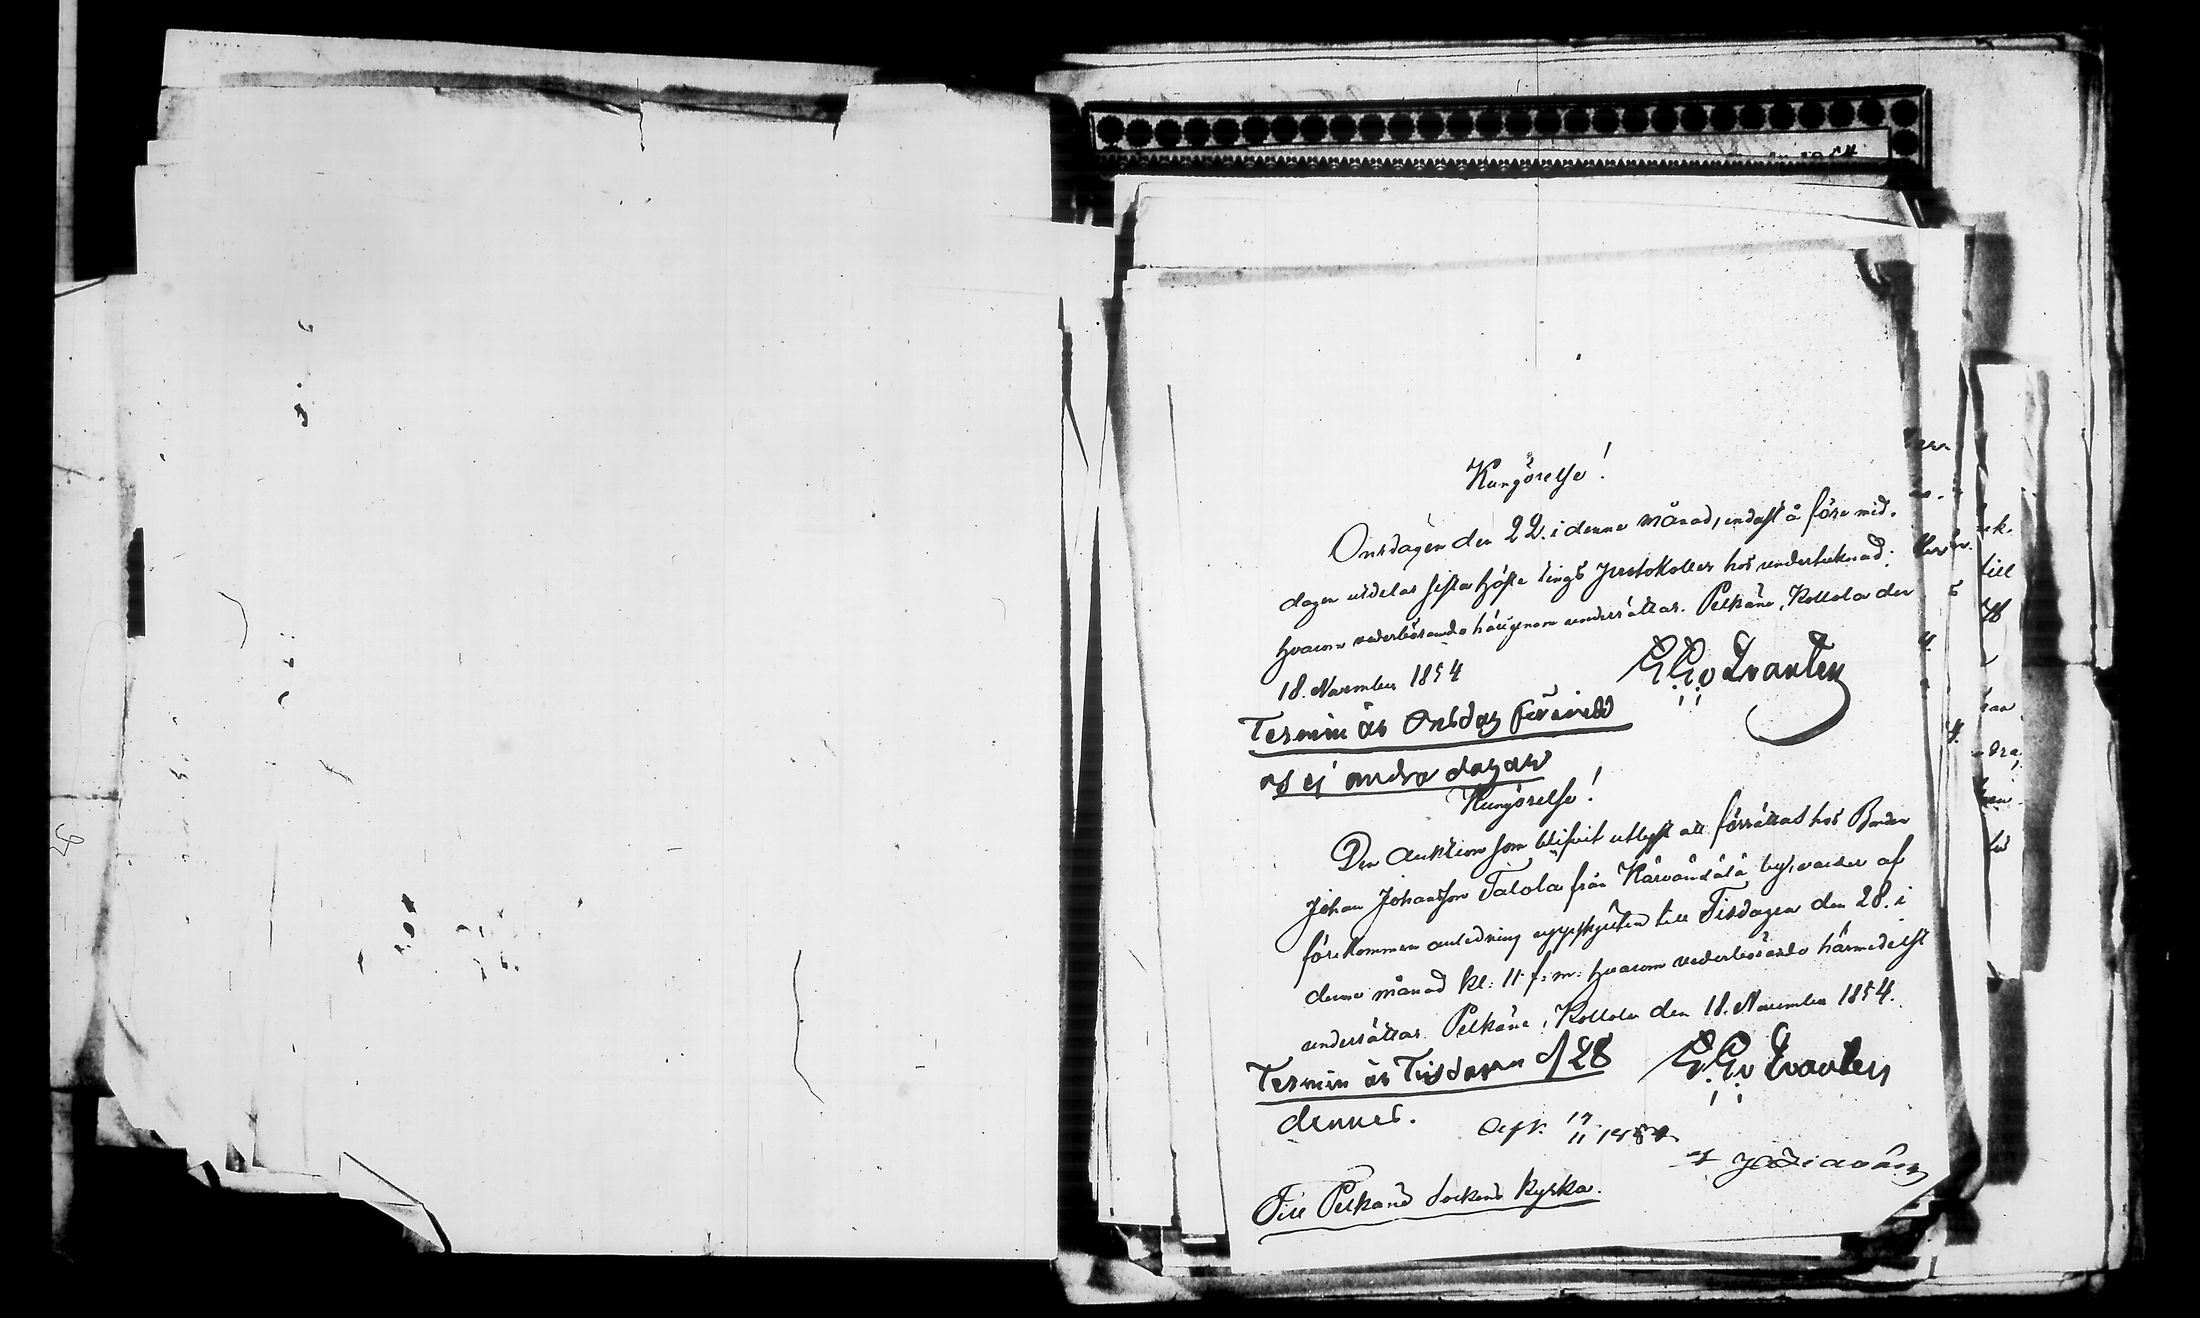 Kungörelse!
Onsdagen den 22. i denne månad, endast å före mid.
dagen utdelas sista höste tings protokoller hos undertecknad.
hvarom vederbörande härigenom underrättas. Pelkäne, Kollola den
18. November 1854
E. G. v Qvanten
Termin är Onsdag förmidd
och ej andra dagar
Kungörelse!
Den Auktion som blifvit utlyst att förrättas hos Bonden
Johan Johansson Talola från Kärvändälä by, varder af
förekommen anledning uppskjuten till Tisdagen den 28. i
denne månad kl: 11 f: m: hvarom vederbörande härmedelst
underrättas. Pelkäne, Kollola den 18. November 1854.
E. G. v Qvanten
Termin är Tisdagen d 28
dennes.
19
11 1854
Till Pelkäne Sockens Kyrka.